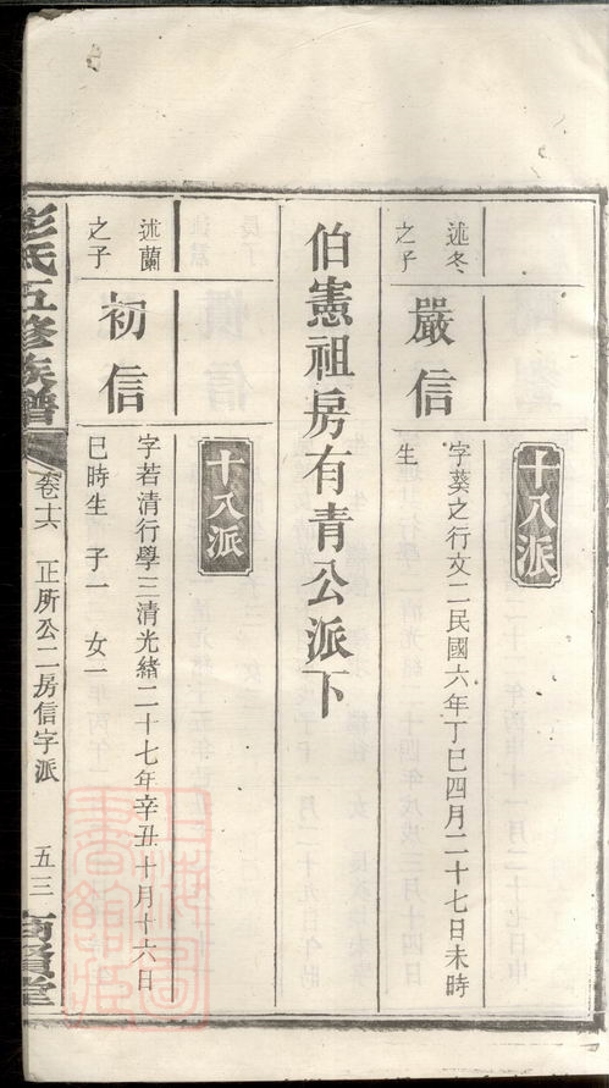 十八派
述冬
之子
嚴信
字葵之行文二民國六年丁巳四月二十七日未時
生
伯憲祖房有青公派下
十八派
述蘭
之子
初信
字若清行學三清光緒二十七年辛丑十月十六日
巳時生 子一 女一
彭氏五修族譜 卷十六 正所公二房信字派 五三 商賢堂